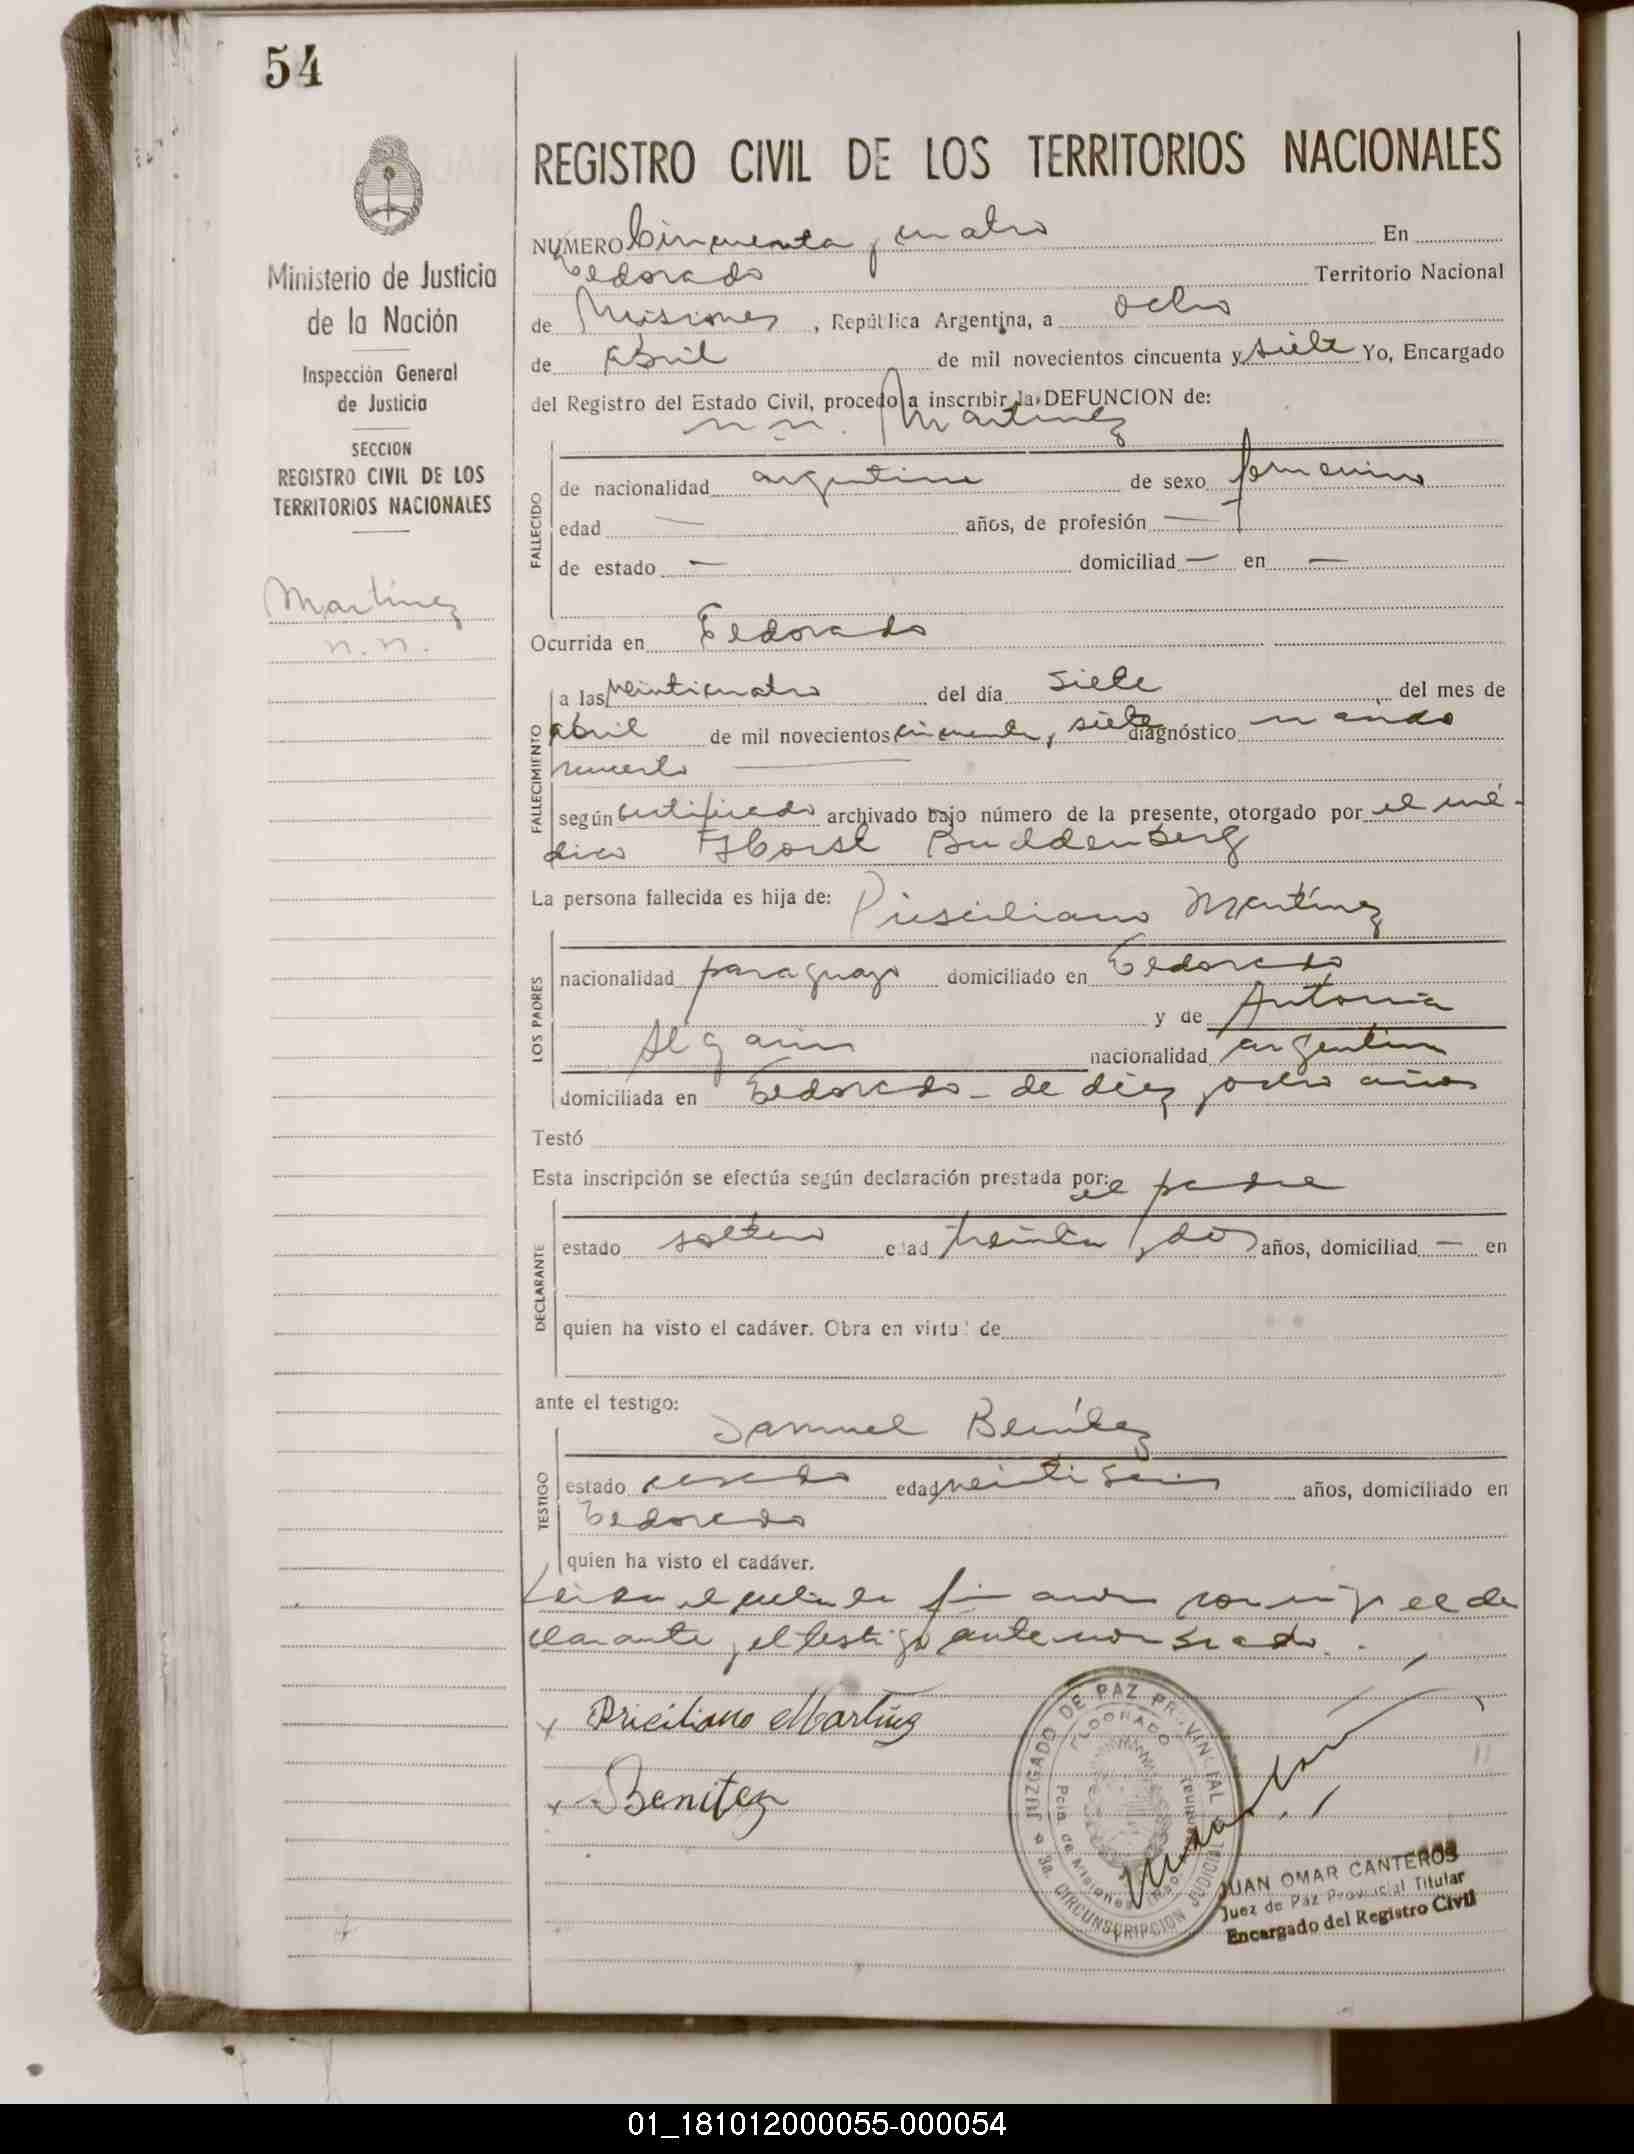 54
Ministerio de Justicia
de la Nación
Inspección General
de Justicia
SECCION
REGISTRO CIVIL DE LOS
TERRITORIOS NACIONALES
Martínez
n.n.
REGISTRO CIVIL DE LOS TERRITORIOS NACIONALES
NUMERO Cincuenta y cuatro En
Eldorado Territorio Nacional
de Misiones, República Argentina, a ocho
de abril de mil novecientos cincuenta y siete Yo, Encargado
del Registro del Estado Civil, procedo a inscribir la DEFUNCION de:
n.n. Martinez
FALLECIDO
de nacionalidad argentina de sexo femenino
edad — años, de profesión —
de estado — domiciliad — en —
Ocurrida en Eldorado
FALLECIMIENTO
a las veinticuatro del día siete del mes de
abril de mil novecientos cincuenta y siete diagnóstico nacido
muerto
según certificado archivado bajo número de la presente, otorgado por el mé-
dico Horst Buddenberg
La persona fallecida es hija de: Prisciliano Martínez
LOS PADRES
nacionalidad paraguayo domiciliado en Eldorado
y de Antonia
nacionalidad argentina
domiciliada en Eldorado - de diez y ocho años
Testó
Esta inscripción se efectúa según declaración prestada por: el padre
DECLARANTE
estado soltero edad treinta y dos años, domiciliad — en
quien ha visto el cadáver. Obra en virtud de
ante el testigo:
Samuel Benítez
TESTIGO
estado casado edad veintiseis años, domiciliado en
Eldorado
quien ha visto el cadáver.
Leida el acta la firman conmigo el de
clarante y el testigo antemencionado.
x Priciliano Martinez
x Benitez
JUZGADO DE PAZ PROVINCIAL
ELDORADO
Pcia de Misiones
3a. CIRCUNSCRIPCION JUDICIAL
JUAN OMAR CANTEROS
Juez de Paz Provincial Titular
Encargado del Registro Civil
01_181012000055-000054